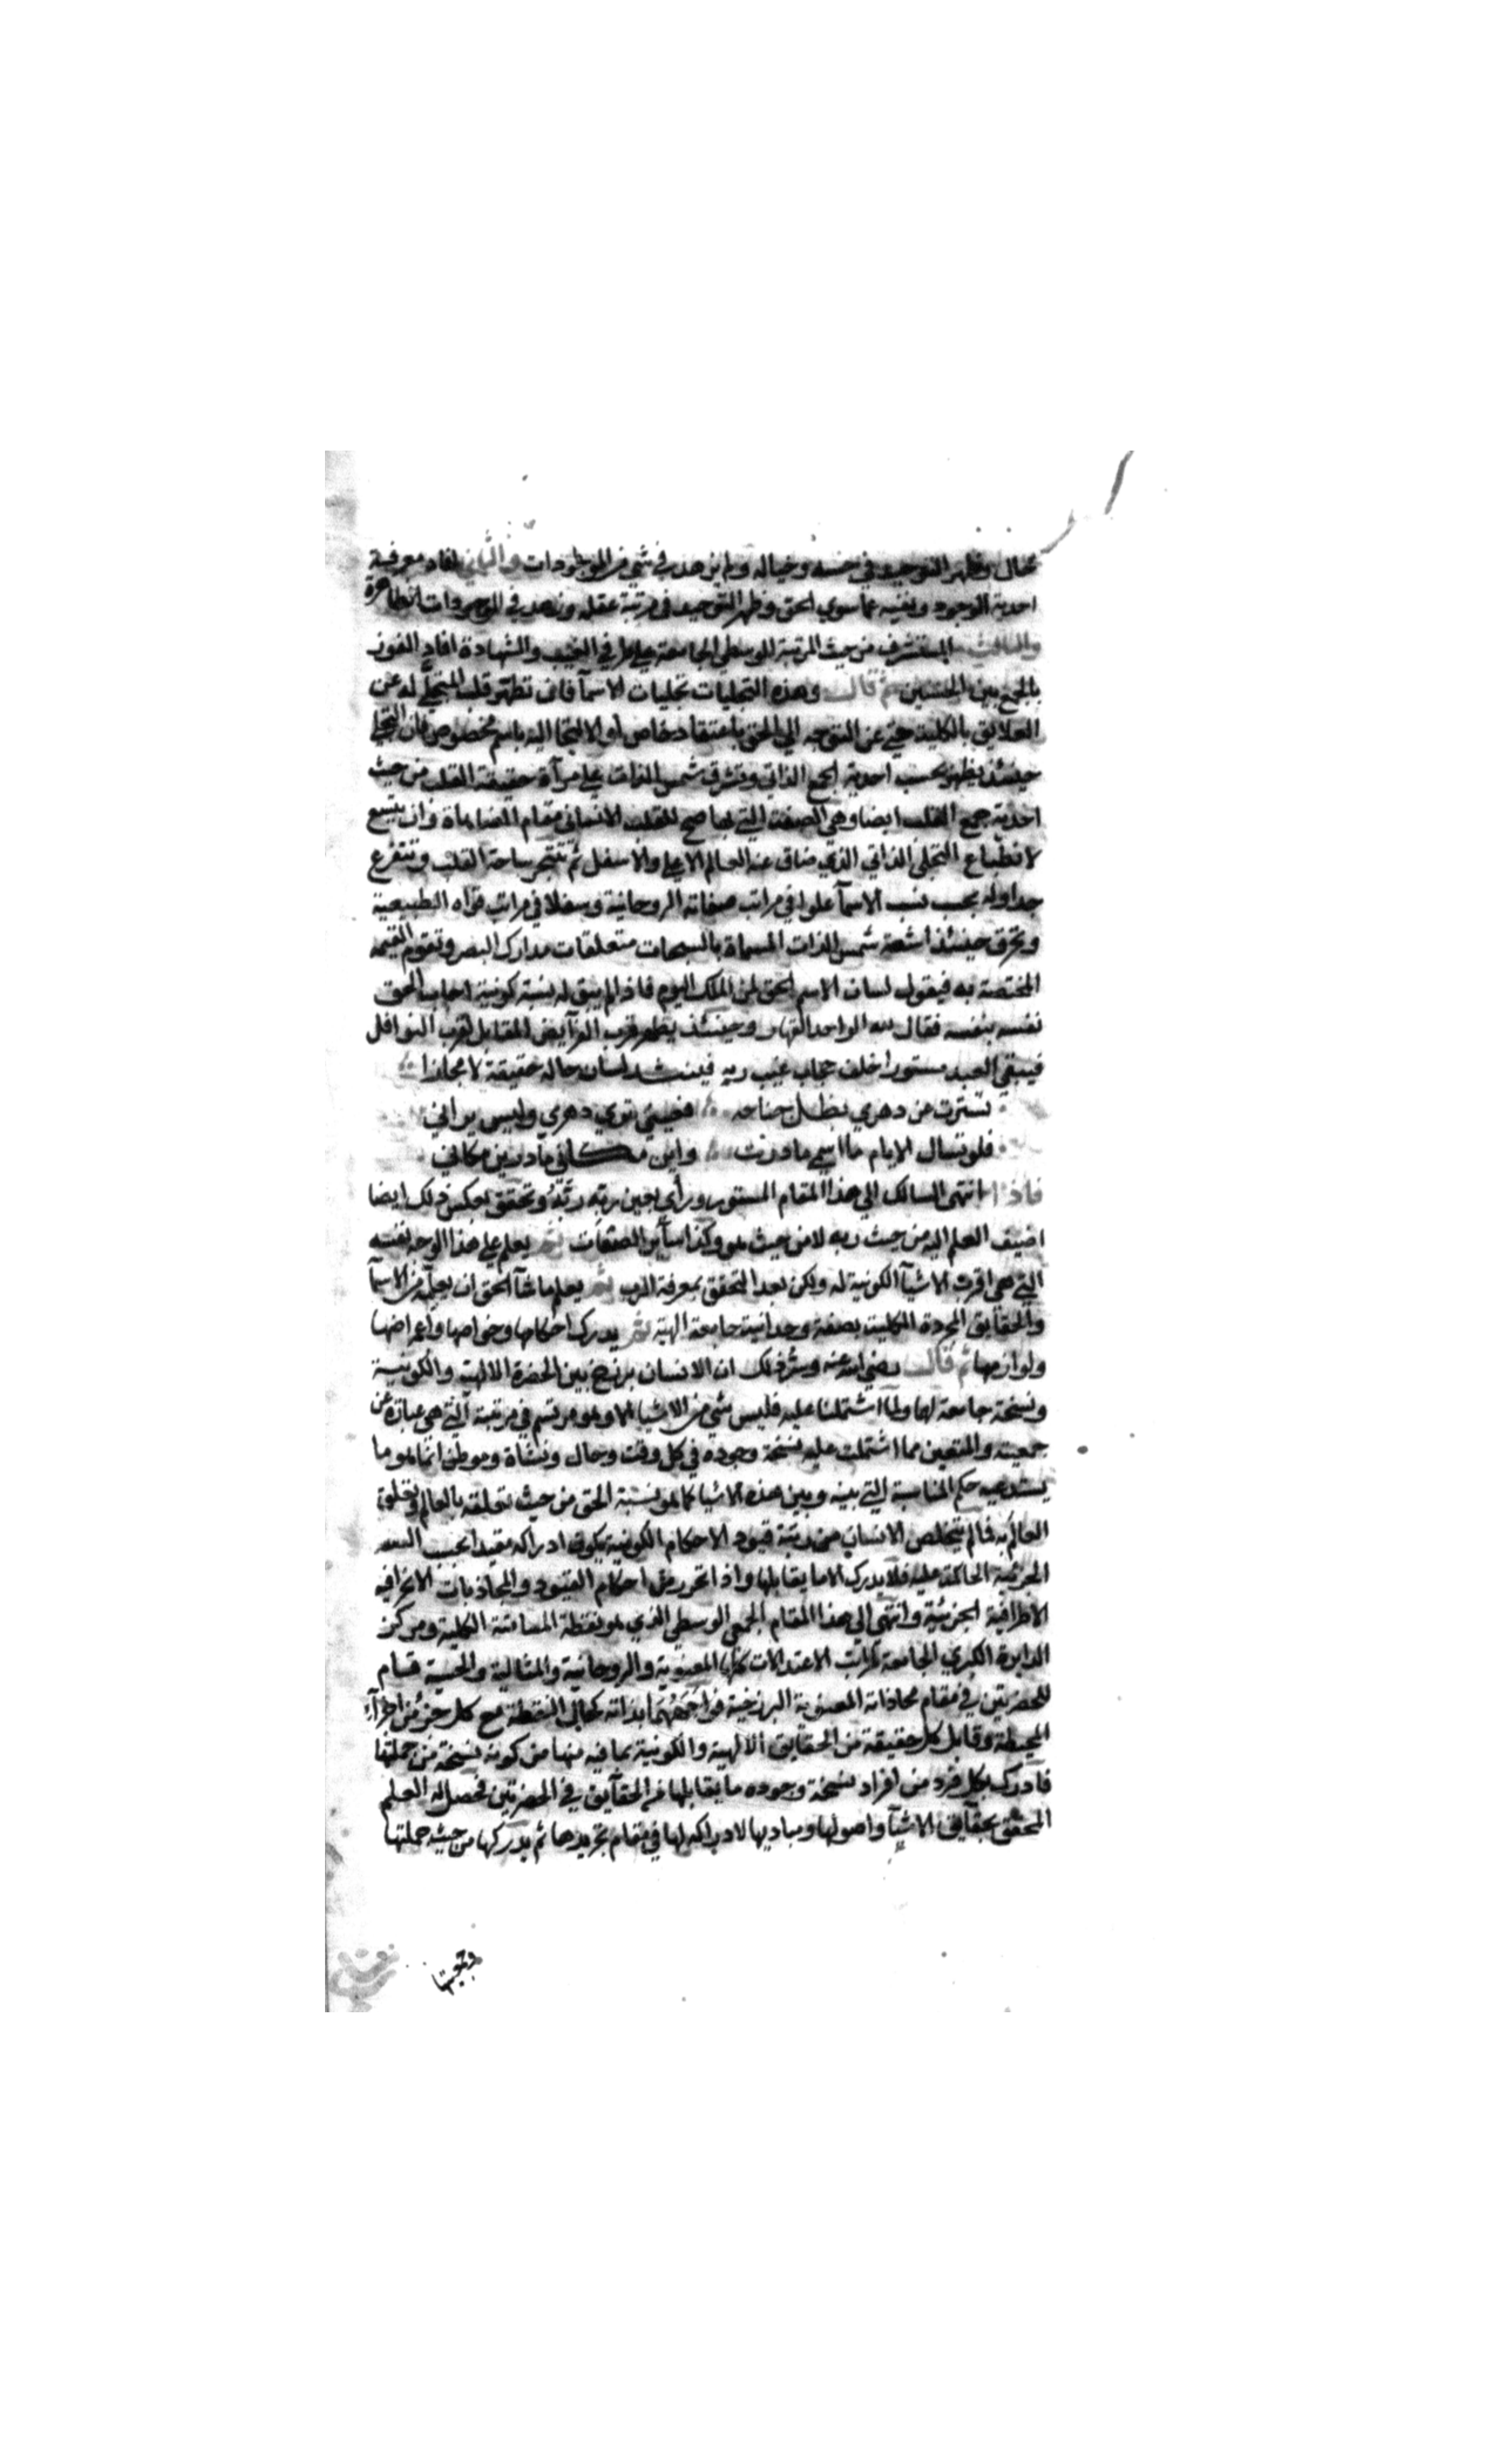 محال وظهر التوحيد في حسه وخياله ولم يزهد في شي من الموجودات والثاني افاد معرفة
احدية الوجود ونفيه عما سوي الحق وظهر التوحيد في مرتبة عقله وزهد في الموجودات الظاهرة
والثالث المستشرف من حيث المرتبة الوسطي الجامعة علي ما في الغيب والشهادة افاد الفوز
بالجمع بين الحسنيين ثم قال وهذه التجليات تجليات الاسما فان تطهر قلب المتجلي له عن
العلايق بالكلية حتي عن التوجه الي الحق باعتقاد خاص او الالتجا اليه باسم مخصوص فان التجلي
حينئذ يظهر بحسب احدية الجمع الذاتي وتشرق شمس الذات علي مرآة حقيقة القلب من حيث
احدية جمع القلب ايضا وهي الصفة التي بها صح للقلب الانساني مقام المضاهاة وان يتسع
لانطباع التجلي الذاتي الذي ضاق عنه العالم الاعلي والاسفل ثم تتفجر ساحة القلب وتتفرع
جداوله بحسب نسب الاسما علوا في مراتب صفاته الروحانية وسفلا في مراتب قواه الطبيعية
وتحرق حينئذ اشعة شمس الذات المسماة بالسبحات متعلقات مدارك البصر وتقوم القيمة
المختصة به فيقول لسان الاسم الحق لمن الملك اليوم فاذا لم يبق له نسبة كونية اجاب الحق
نفسه بنفسه فقال لله الواحد القهار وحينئذ يظهر قرب الفرايض المقابل لقرب النوافل
فيبقي العبد مستورا خلف حجاب غيب ربه فينشد لسان حاله حقيقة لا مجازا
تسترت من دهري بظل جناحه فعيني تري دهري وليس يراني
فلو تسال الايام ما اسمي ما درت واين مكاني ما درين مكاني
فاذا انتهي السالك الي هذا المقام المستور وراي بعين ربه ربه وتحقق بعكس ذلك ايضا
اضيف العلم اليه من حيث ربه لا من حيث هو وكذا سائر الصفات ثم يعلم علي هذا الوجه نفسه
التي هي اقرب الاشيا الكونية له ولكن بعد التحقق بمعرفة الرب ثم يعلم ما شا الحق ان يعلمه من الاسما
والحقايق المجردة الكلية بصفة وحدانية جامعة الهية ثم يدرك احكامها وخواصها واعراضها
ولوازمها ثم قال رضي الله عنه وسر ذلك ان الانسان برزخ بين الحضرة الالهية والكونية
ونسخة جامعة لهما ولما اشتملتا عليه فليس شي من الاشيا الا وهو مرتسم في مرتبته التي هي عبارة عن
جمعيته والمتعين مما اشتملت عليه نسخة وجوده في كل وقت وحال ونشاة وموطن انما هو ما
يستدعيه حكم المناسبة التي بينه وبين هذه الاشيا كما هو نسبة الحق من حيث تعلقه بالعالم وتعلق
العالم به فما لم يتخلص الانسان من ربقة قيود الاحكام الكونية يكون ادراكه مقيدا بحسب الصفة
الجزئية الحاكمة عليه فلا يدرك الا ما يقابلها واذا تحرر من احكام القيود والمجاذبات الانحرافية
الاطرافية الجزئية وانتهي الي هذا المقام الجمعي الوسطي الذي هو نقطة المسامتة الكلية ومركز
الدايرة الكبري الجامعة لمراتب الاعتدالات كلها المعنوية والروحانية والمثالية والحسية قام
للحضرتين في مقام محاذاته المعنوية البرزخية فواجههما بذاته كحال النقطة مع كل جزء من اجزاء
المحيطة وقابل كل حقيقة من الحقايق الالهية والكونية بما فيه منها من كونه نسخة من جملتها
فادرك بكل فرد من افراد نسخة وجوده ما يقابلها من الحقايق في الحضرتين فحصل له العلم
المحقق بحقايق الاشيا واصولها ومباديها لادراكه لها في مقام تجريدها ثم يدركها من حيث جملتها